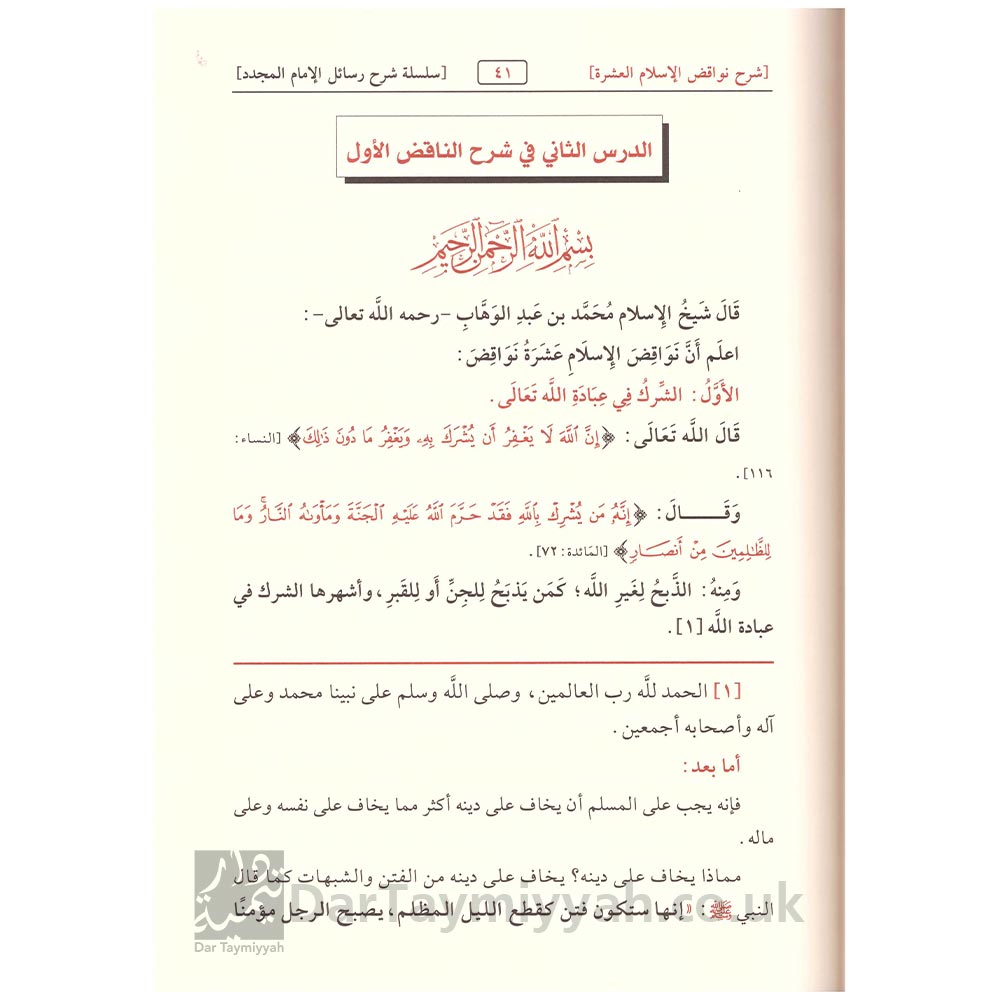 [شرح نواقض الإسلام العشرة] ٤١ [سلسلة شرح رسائل الإمام المجدد]
الدرس الثاني في شرح الناقض الأول
بِسْمِ اللَّهِ الرَّحْمَنِ الرَّحِيمِ
قَالَ شَيخُ الإِسلام مُحَمَّد بن عَبدِ الوَهَّابِ -رحمه اللَّه تعالى- :
اعلَم أَنَّ نَوَاقِضَ الإِسلَامِ عَشَرَةُ نَوَاقِضَ :
الأَوَّلُ : الشِّركُ فِي عِبَادَةِ اللَّه تَعَالَى .
قَالَ اللَّه تَعَالَى : ﴿إِنَّ ٱللَّهَ لَا يَغْفِرُ أَن يُشْرَكَ بِهِۦ وَيَغْفِرُ مَا دُونَ ذَٰلِكَ﴾ [النساء :
١١٦] .
وَقَـــــالَ : ﴿إِنَّهُۥ مَن يُشْرِكْ بِٱللَّهِ فَقَدْ حَرَّمَ ٱللَّهُ عَلَيْهِ ٱلْجَنَّةَ وَمَأْوَىٰهُ ٱلنَّارُ ۖ وَمَا
لِلظَّٰلِمِينَ مِنْ أَنصَارٍ﴾ [المائدة : ٧٢] .
وَمِنهُ : الذَّبحُ لِغَيرِ اللَّه ؛ كَمَن يَذبَحُ لِلجِنِّ أَو لِلقَبرِ ، وأشهرها الشرك في
عبادة اللَّه [١] .
[١] الحمد للَّه رب العالمين ، وصلى اللَّه وسلم على نبينا محمد وعلى
آله وأصحابه أجمعين .
أما بعد :
فإنه يجب على المسلم أن يخاف على دينه أكثر مما يخاف على نفسه وعلى
ماله .
مماذا يخاف على دينه؟ يخاف على دينه من الفتن والشبهات كما قال
النبي ﷺ : «إنها ستكون فتن كقطع الليل المظلم ، يصبح الرجل مؤمنًا
Dar Taymiyyah
DarTaymiyyah.co.uk